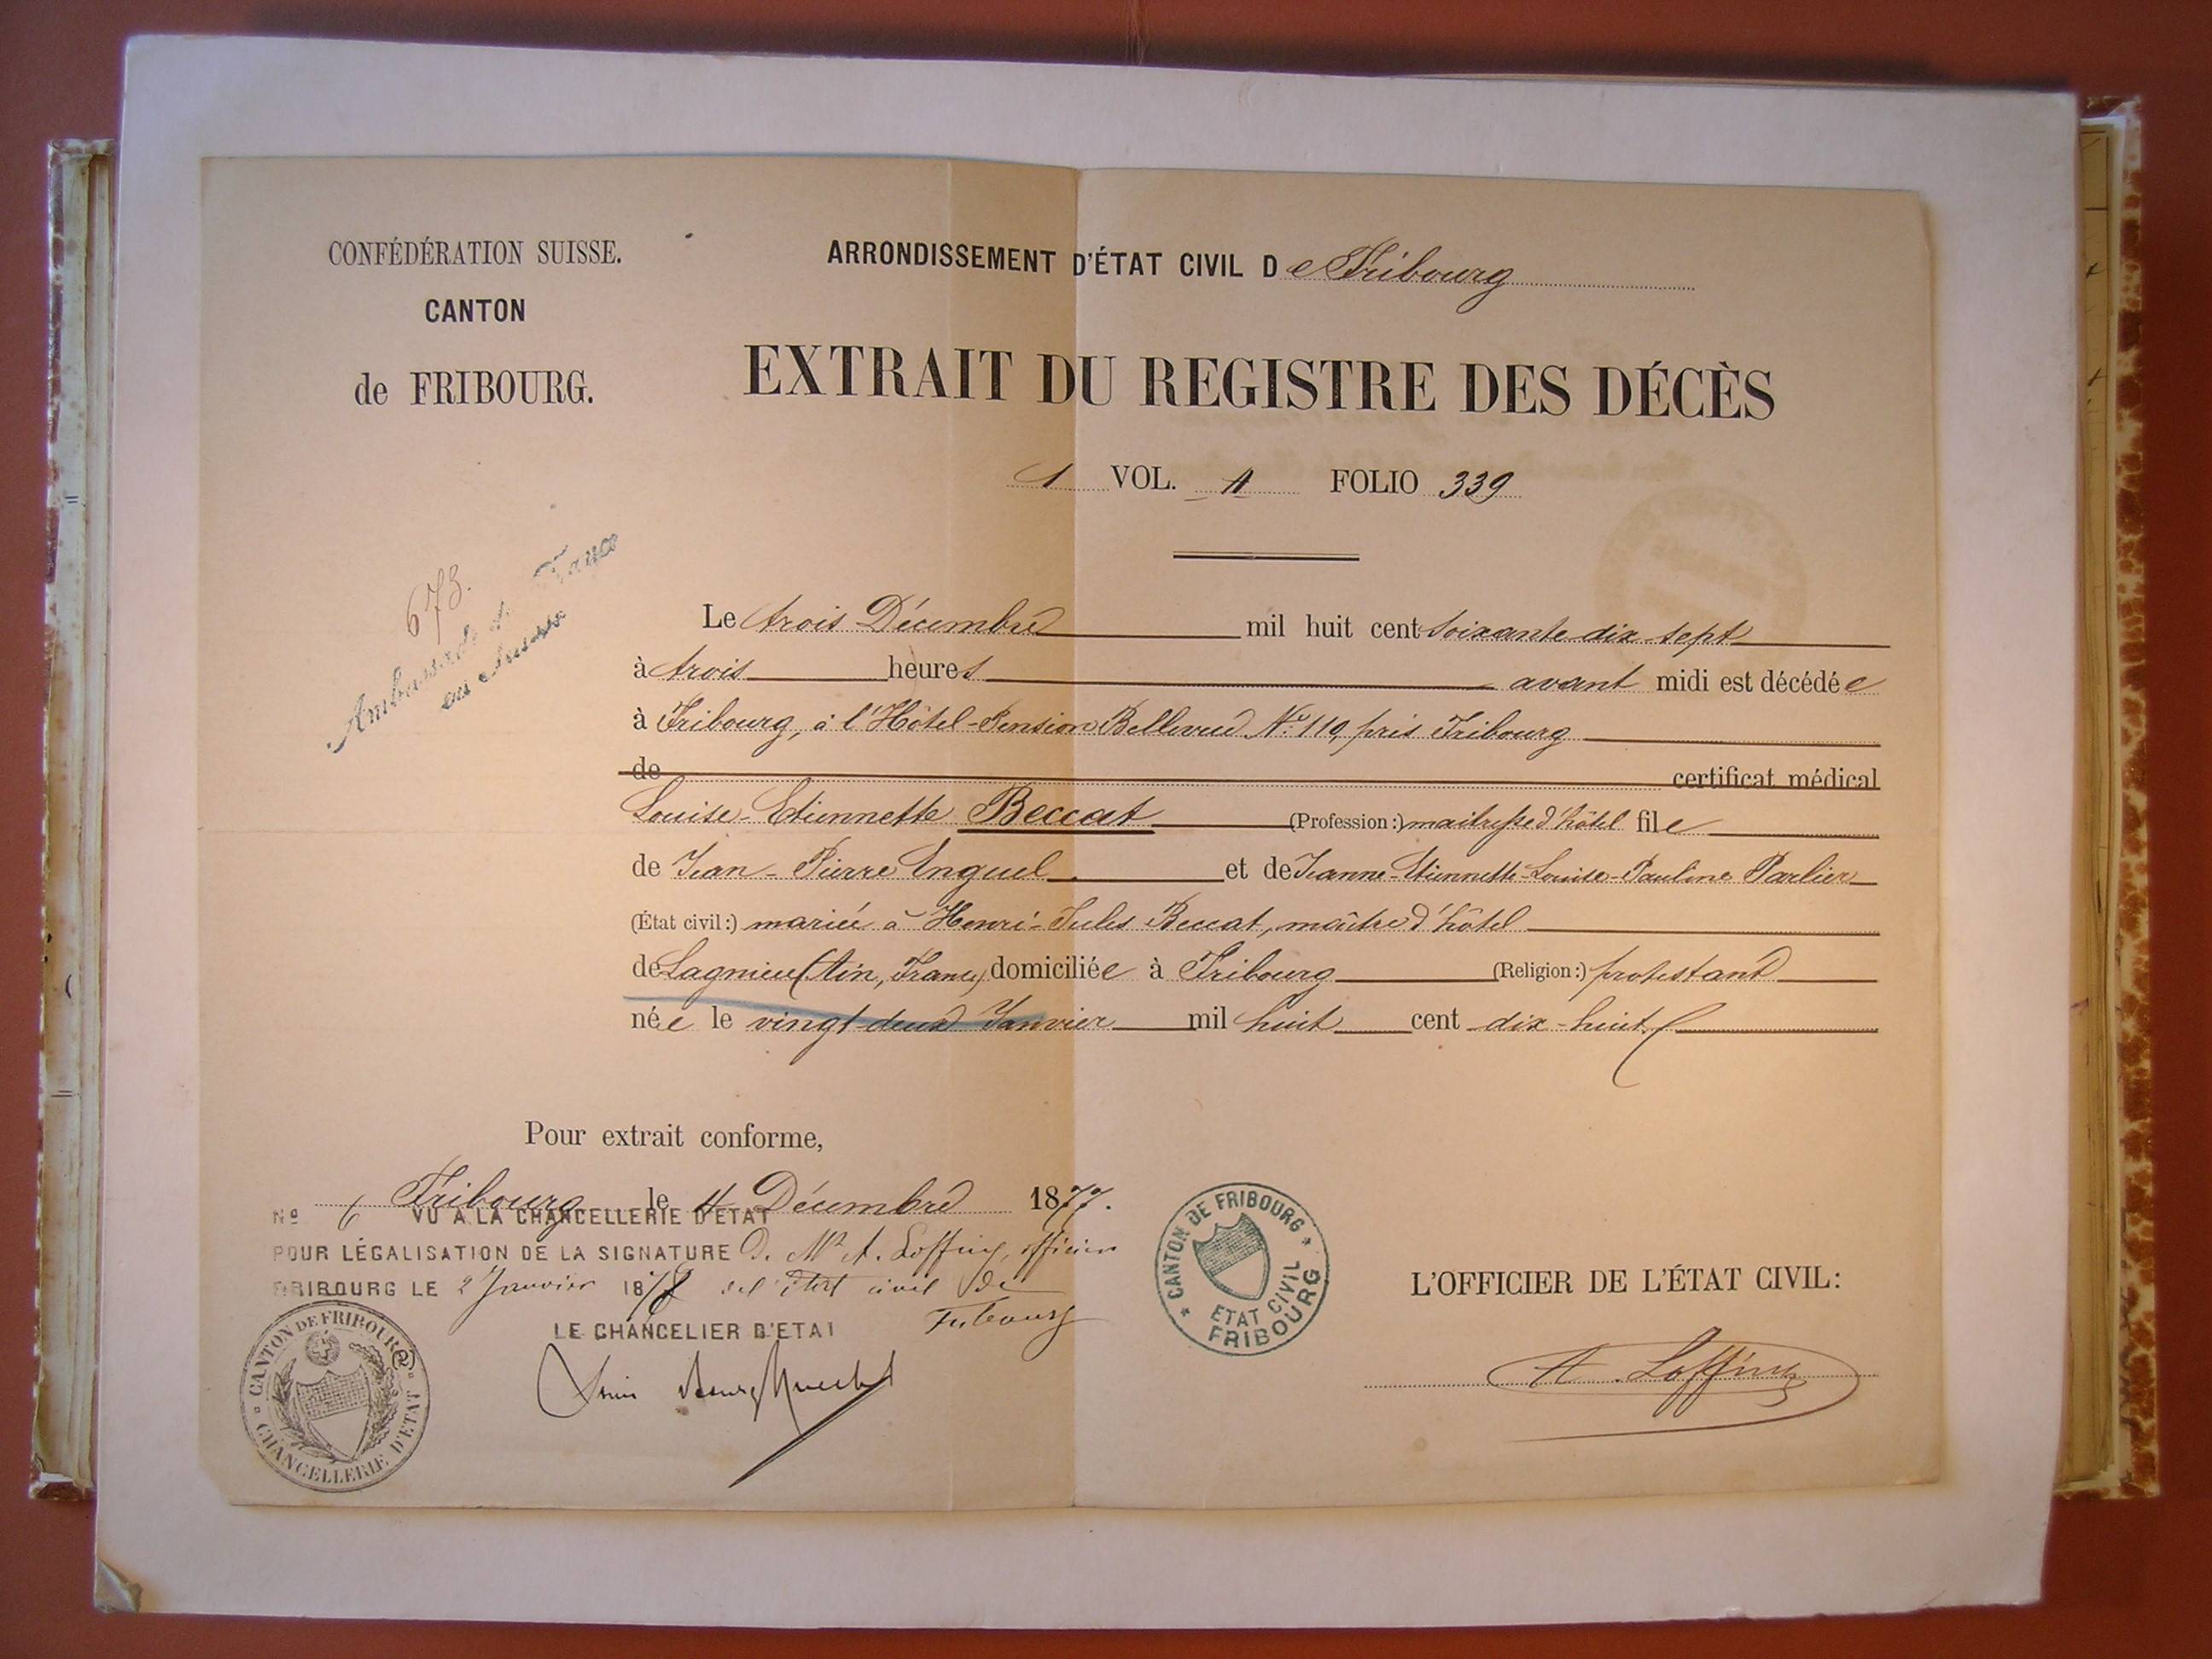 CONFÉDÉRATION SUISSE.
CANTON
de FRIBOURG.
ARRONDISSEMENT D'ÉTAT CIVIL De Fribourg
EXTRAIT DU REGISTRE DES DÉCÈS
1 VOL. A FOLIO 339
673.
Ambassade de France
en Suisse
Le trois Décembre mil huit cent soixante dix sept
à trois heures avant midi est décédée
à Fribourg, à l'Hôtel-Pension Bellevue No. 119, près Fribourg
de certificat médical
Louise-Etiennette Beccat (Profession:) maitresse d'hôtel file
de Jean-Pierre Enguel et de Jeanne-Etiennette-Louise-Pauline Parlier
(État civil:) mariée à Henri-Jules Beccat, maître d'hôtel
de Lagnieu (Ain, France) domiciliée à Fribourg (Religion:) protestant
née le vingt-deux Janvier mil huit cent dix-huit
Pour extrait conforme,
Fribourg le 4 Décembre 1877.
No 6 VU A LA CHANCELLERIE D'ETAT
POUR LÉGALISATION DE LA SIGNATURE D. Mr A. Loffing, officier
FRIBOURG LE 2 Janvier 1878 de l'état civil de
Fribourg
LE CHANCELIER D'ETAT
CANTON DE FRIBOURG
CHANCELLERIE D'ETAT
CANTON DE FRIBOURG
ETAT CIVIL
FRIBOURG
L'OFFICIER DE L'ÉTAT CIVIL:
A. Loffing